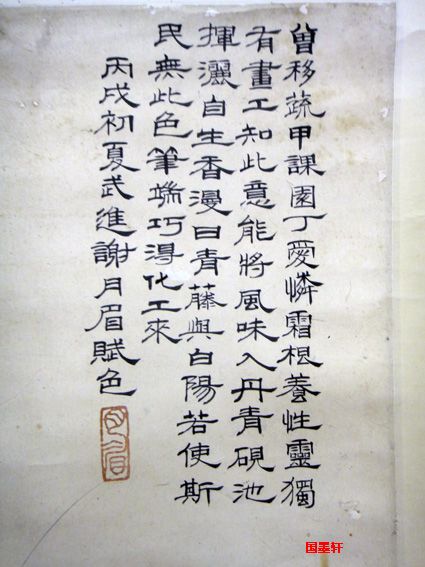 曾移蔬甲課園丁愛憐霜根養性靈獨
有畫工知此意能將風味入丹青硯池
揮灑自生香漫曰青藤與白陽若使斯
民無此色筆端巧淂化工來
丙戌初夏武進謝月眉賦色
国墨轩